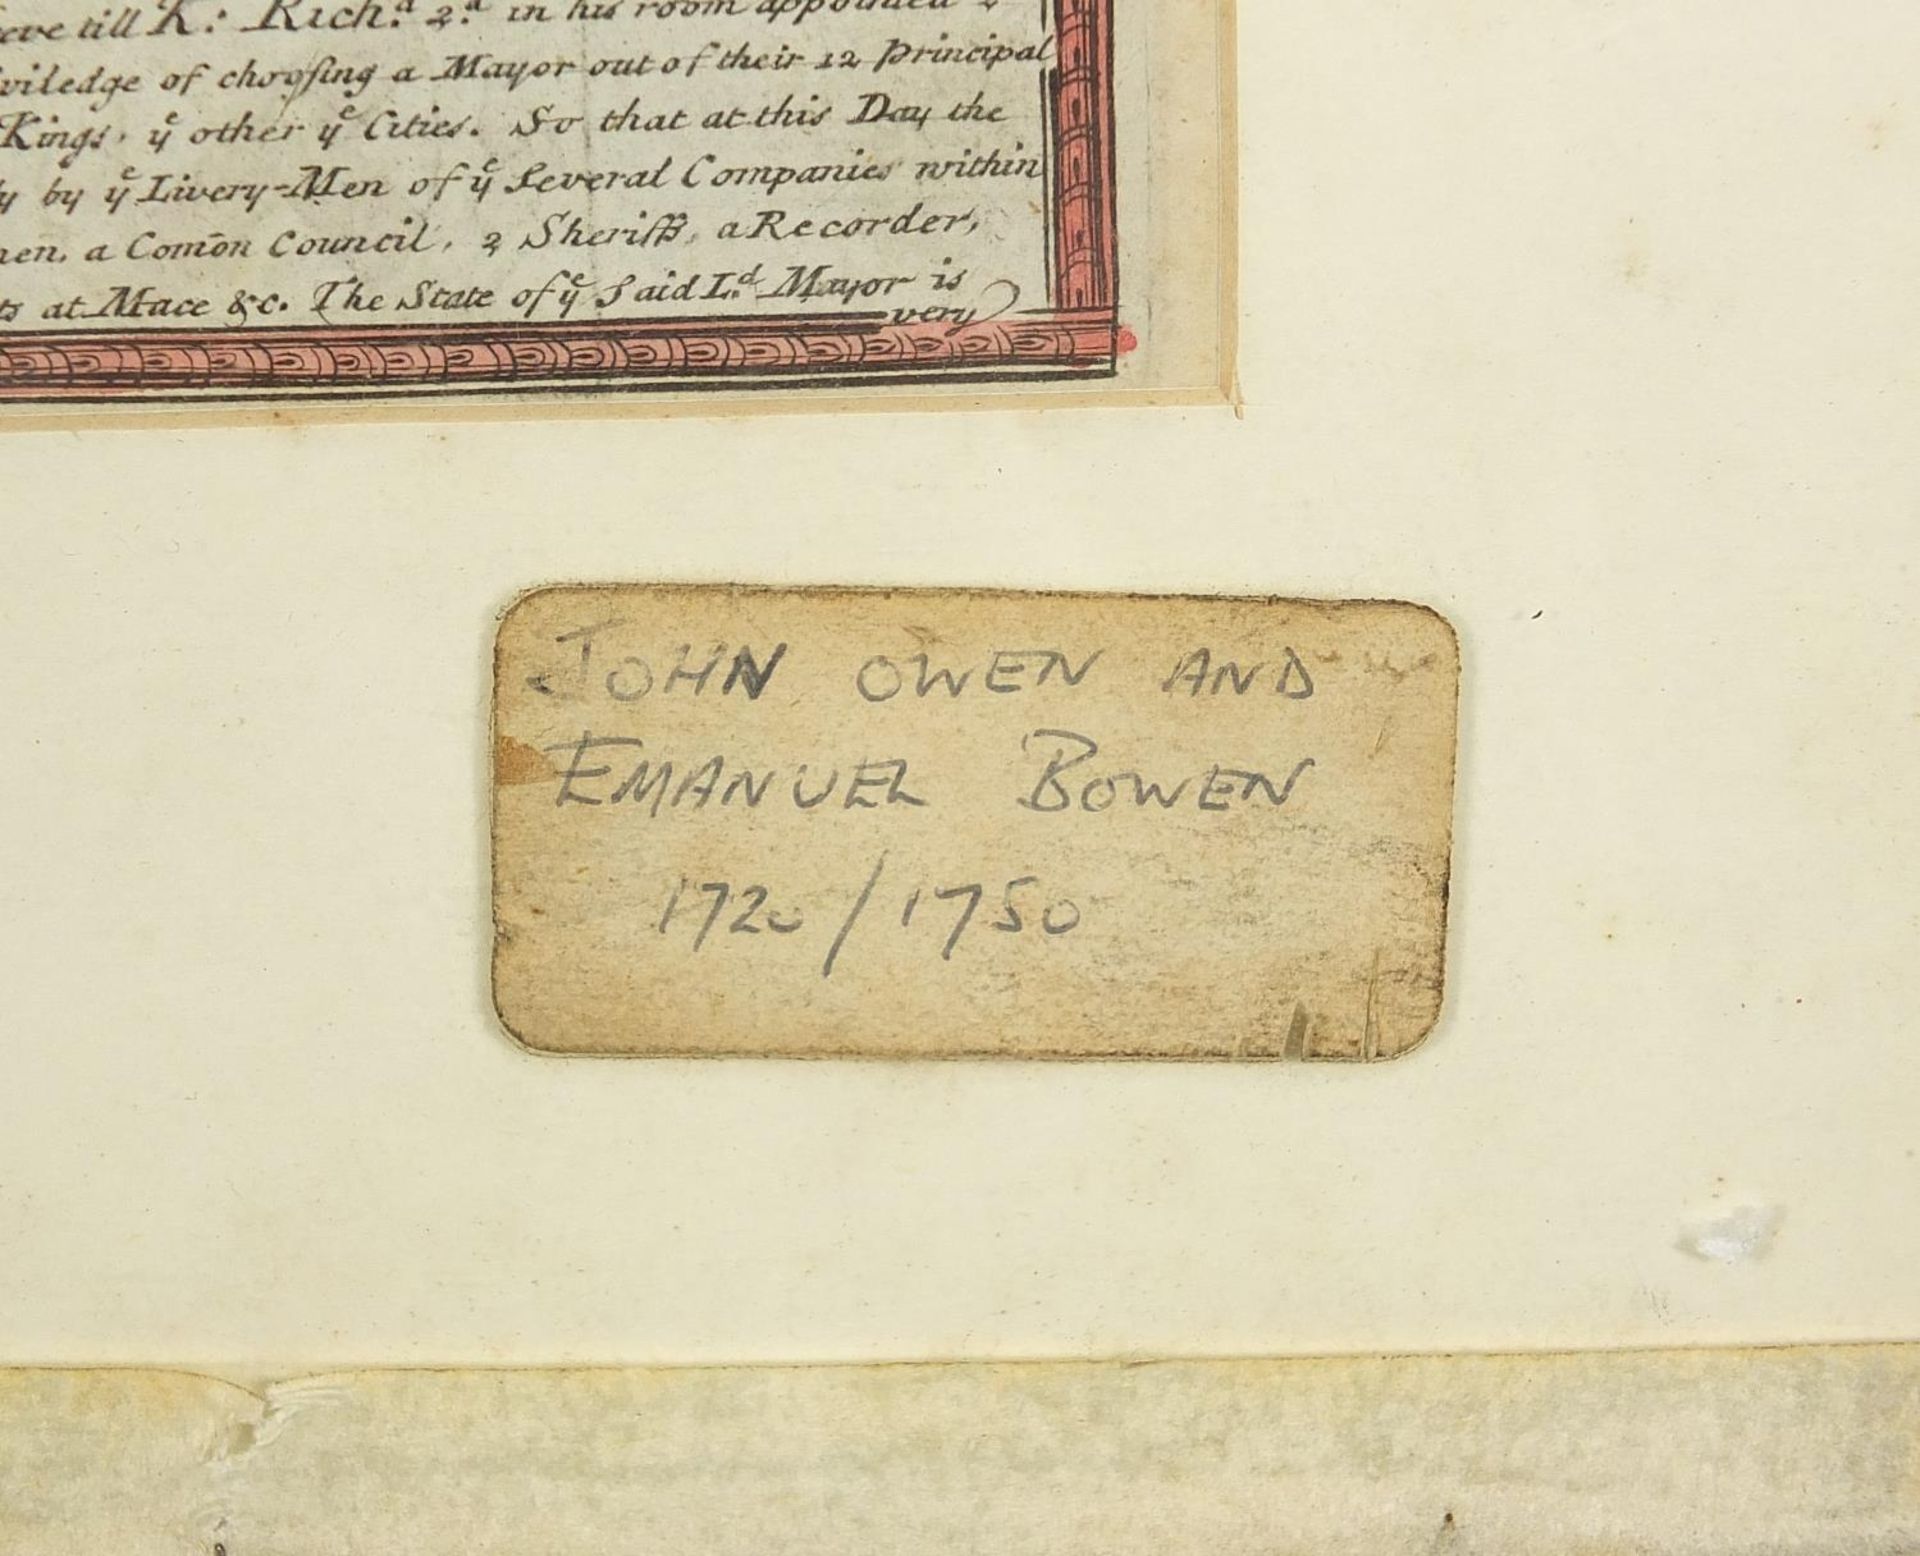 till K: Rich.d 2.d in his room appointed 2
viledge of choosing a Mayor out of their 12 Principal
Kings. ye other ye Cities. So that at this Day the
by ye Livery-Men of ye Several Companies within
a Comōn Council, 2 Sheriffs, a Recorder,
at Mace &c. The State of ye Said Ld. Mayor is
very
JOHN OWEN AND
EMANUEL BOWEN
1720/1750